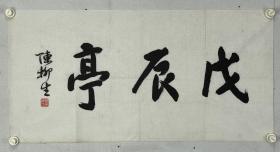 戊辰亭
陳柳生